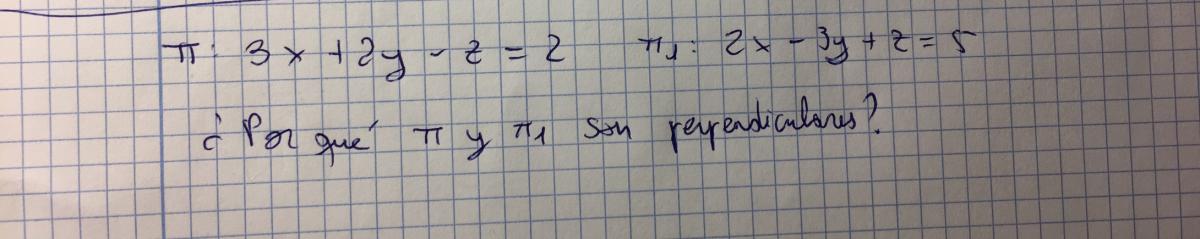 π: 3x + 2y - z = 2 π1: 2x - 3y + z = 5
¿Por qué π y π1 son perpendiculares?